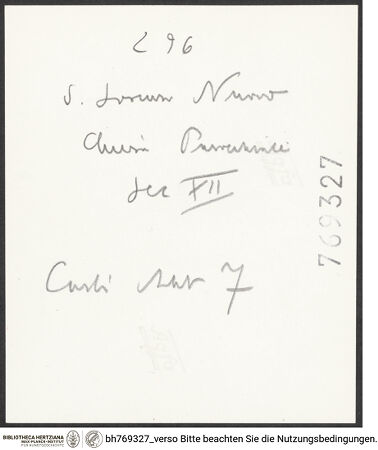 296
S. Lorenzo Nuovo
Chiesa Parrocchiale
sec XII
Carli 7
769327
BIBLIOTHECA HERTZIANA
MAX-PLANCK-INSTITUT
FÜR KUNSTGESCHICHTE
bh769327_verso Bitte beachten Sie die Nutzungsbedingungen.